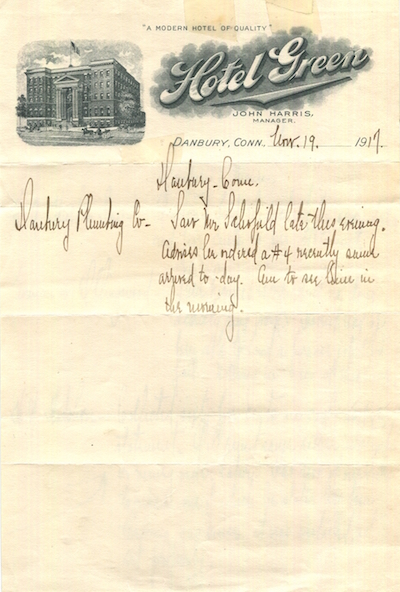 "A MODERN HOTEL OF QUALITY"
Hotel Green
JOHN HARRIS,
MANAGER.
DANBURY, CONN. Nov. 19. 1917.
Danbury - Conn.
Danbury Plumbing Co - Saw Mr Schofield late this evening.
Advises he ordered a #4 recently same
arrived to-day. Am to see him in
the morning.